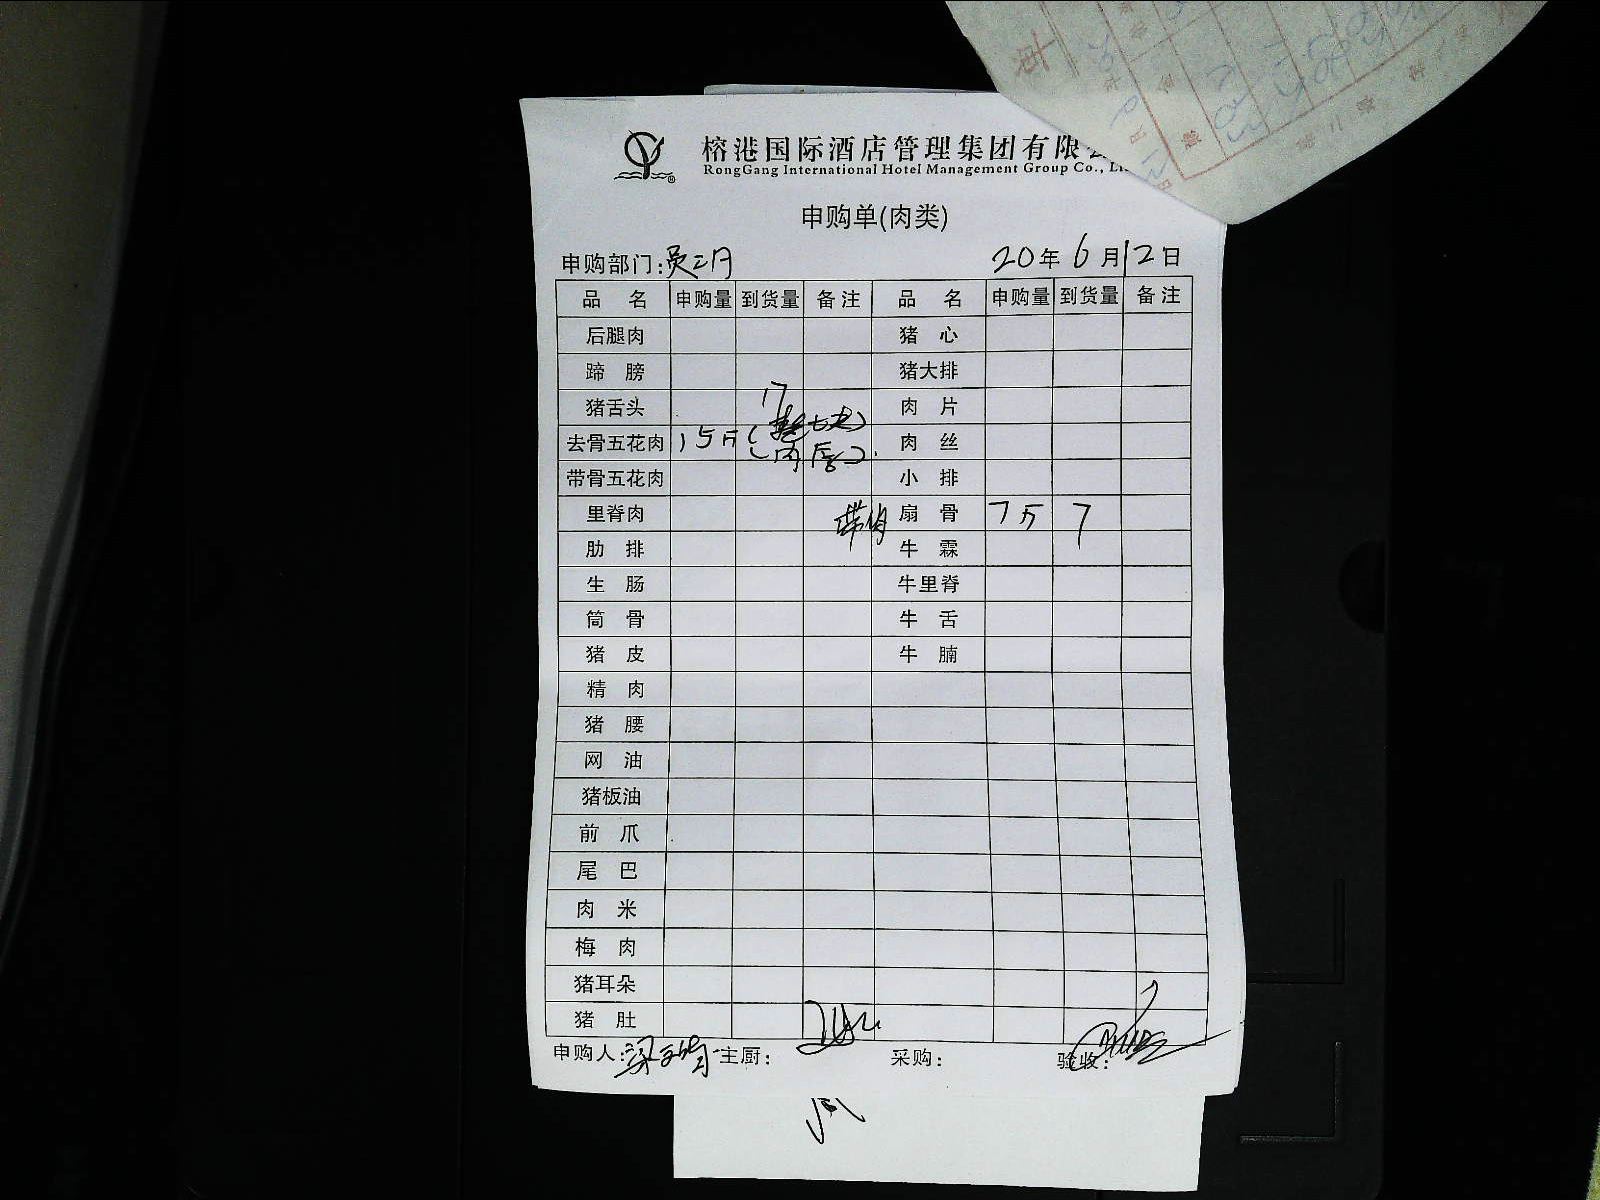 榕港国际酒店管理集团有限
RongGang International Hotel Management Group Co.,
申购单(肉类)
申购部门: 20年6月12日
品名 申购量 到货量 备注 品名 申购量 到货量 备注
后腿肉 猪心
蹄膀 猪大排
17
猪舌头 肉片
去骨五花肉 15斤 肉丝
带骨五花肉 小排
里脊肉 带肉 扇骨 7斤 7
肋排 牛霖
生肠 牛里脊
筒骨 牛舌
猪皮 牛腩
精肉
猪腰
网油
猪板油
前爪
尾巴
肉米
梅肉
猪耳朵
猪肚
申购人: 主厨: 采购: 验收: